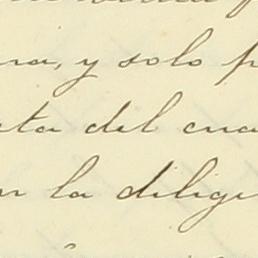 na, y solo p
ta del cua
n la dilige